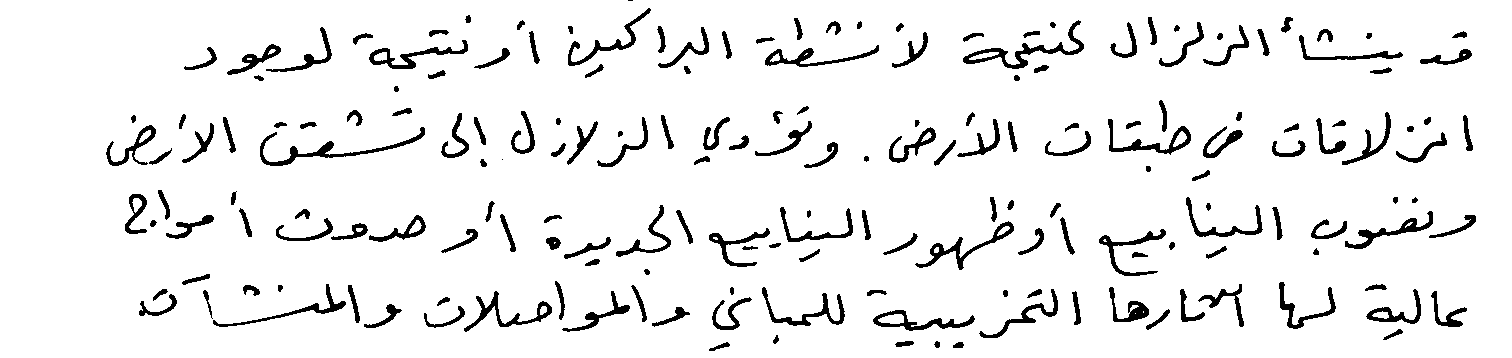 قد ينشأ الزلزال كنتيجة لأنشطة البراكين أو نتيجة لوجود
انزلاقات في طبقات الأرض. وتؤدي الزلازل إلى تشقق الأرض
ونضوب الينابيع أو ظهور الينابيع الجديدة أو حدوث أمواج
عالية لها آثارها التخريبية للمباني والمواصلات والمنشآت